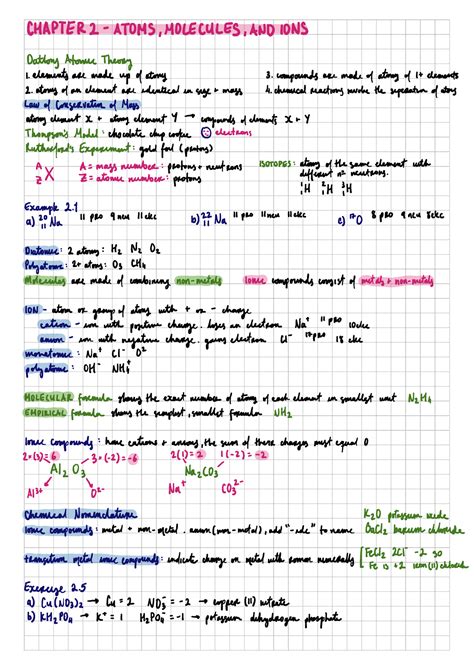 CHAPTER 2 - ATOMS, MOLECULES, AND IONS
Daltons Atomic Theory
1. elements are made up of atoms
3. compounds are made of atoms of 1+ elements
2. atoms of an element are identical in size + mass
4. chemical reactions involve the separation of atoms
Law of Conservation of Mass
atom element X + atom element Y → compounds of elements X + Y
Thompson's Model: chocolate chip cookie electrons
Rutherford's Experiment: gold foil (protons)
A X Z
A = mass number: protons + neutrons
Z = atomic number: protons
ISOTOPES: atoms of the same element with
different nº neutrons.
¹₁H ²₁H ³₁H
Example 2.1
a) ²⁰₁₁Na 11 pro 9 neu 11 elec
b) ²²₁₁Na 11 pro 11 neu 11 elec
c) ¹⁷O 8 pro 9 neu 8 elec
Diatomic: 2 atoms: H₂ N₂ O₂
Polyatomic: 2+ atoms: O₃ CH₄
Molecules are made of combining non-metals
Ionic compounds consist of metals + non-metals
ION - atom or group of atoms with + or - charge
cation - ion with positive charge. loses an electron Na⁺ 11 pro 10 elec
anion - ion with negative charge. gains electron Cl⁻ 17 pro 18 elec
monatomic: Na⁺ Cl⁻ O²⁻
polyatomic: OH⁻ NH₄⁺
MOLECULAR formula shows the exact number of atoms of each element in smallest unit N₂H₄
EMPIRICAL formula shows the simplest, smallest formula NH₂
Ionic Compounds: have cations + anions, the sum of these charges must equal 0
2×(3) = 6 3×(-2) = -6 2(1) = 2 1(-2) = -2
Al₂O₃ Na₂CO₃
Al³⁺ O²⁻ Na⁺ CO₃²⁻
Chemical Nomenclature
K₂O potassium oxide
Ionic compounds: metal + non-metal. anion (non-metal), add "-ide" to name
BaCl₂ barium chloride
transition metal ionic compounds: indicate charge on metal with roman numerals
FeCl₂ 2Cl⁻ -2 so
Fe is +2 iron (II) chloride
Exercise 2.5
a) Cu(NO₃)₂ → Cu = 2 NO₃⁻ = -2 → copper (II) nitrate
b) KH₂PO₄ → K⁺ = 1 H₂PO₄⁻ = -1 → potassium dihydrogen phosphate